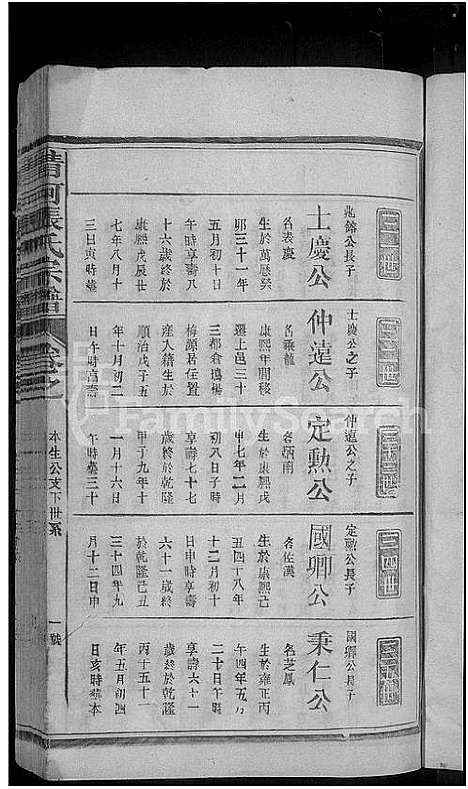 三十一世
兆鎔公長子
士慶公
名表慶
生於萬曆癸
卯三十一年
五月初十日
午時享壽八
十六歲終於
康熙戊辰廿
七年八月十
三日寅時葬
三十二世
士慶公之子
仲達公
名乘龍
康熙年間移
遷上邑三十
三都倉塢場
梅源居住置
產入籍生於
順治戊子五
年十月初二
日午時享壽
三十三世
仲達公之子
定勲公
名炳南
生於康熙戊
申七年二月
初八日子時
享壽七十七
歲終於乾隆
甲子九年十
一月十六日
午時葬三十
三十四世
定勲公長子
國卿公
名佐漢
生於康熙己
丑四十八年
十二月初十
日申時享壽
六十一歲終
於乾隆己丑
三十四年九
月十二日申
三十五世
國卿公長子
秉仁公
名芝鳳
生於雍正丙
午四年五月
二十日午時
享壽六十一
歲終於乾隆
丙午五十一
年五月初四
日亥時葬本
張氏宗譜
卷之
本生公支下世系
一號
FamilySearch